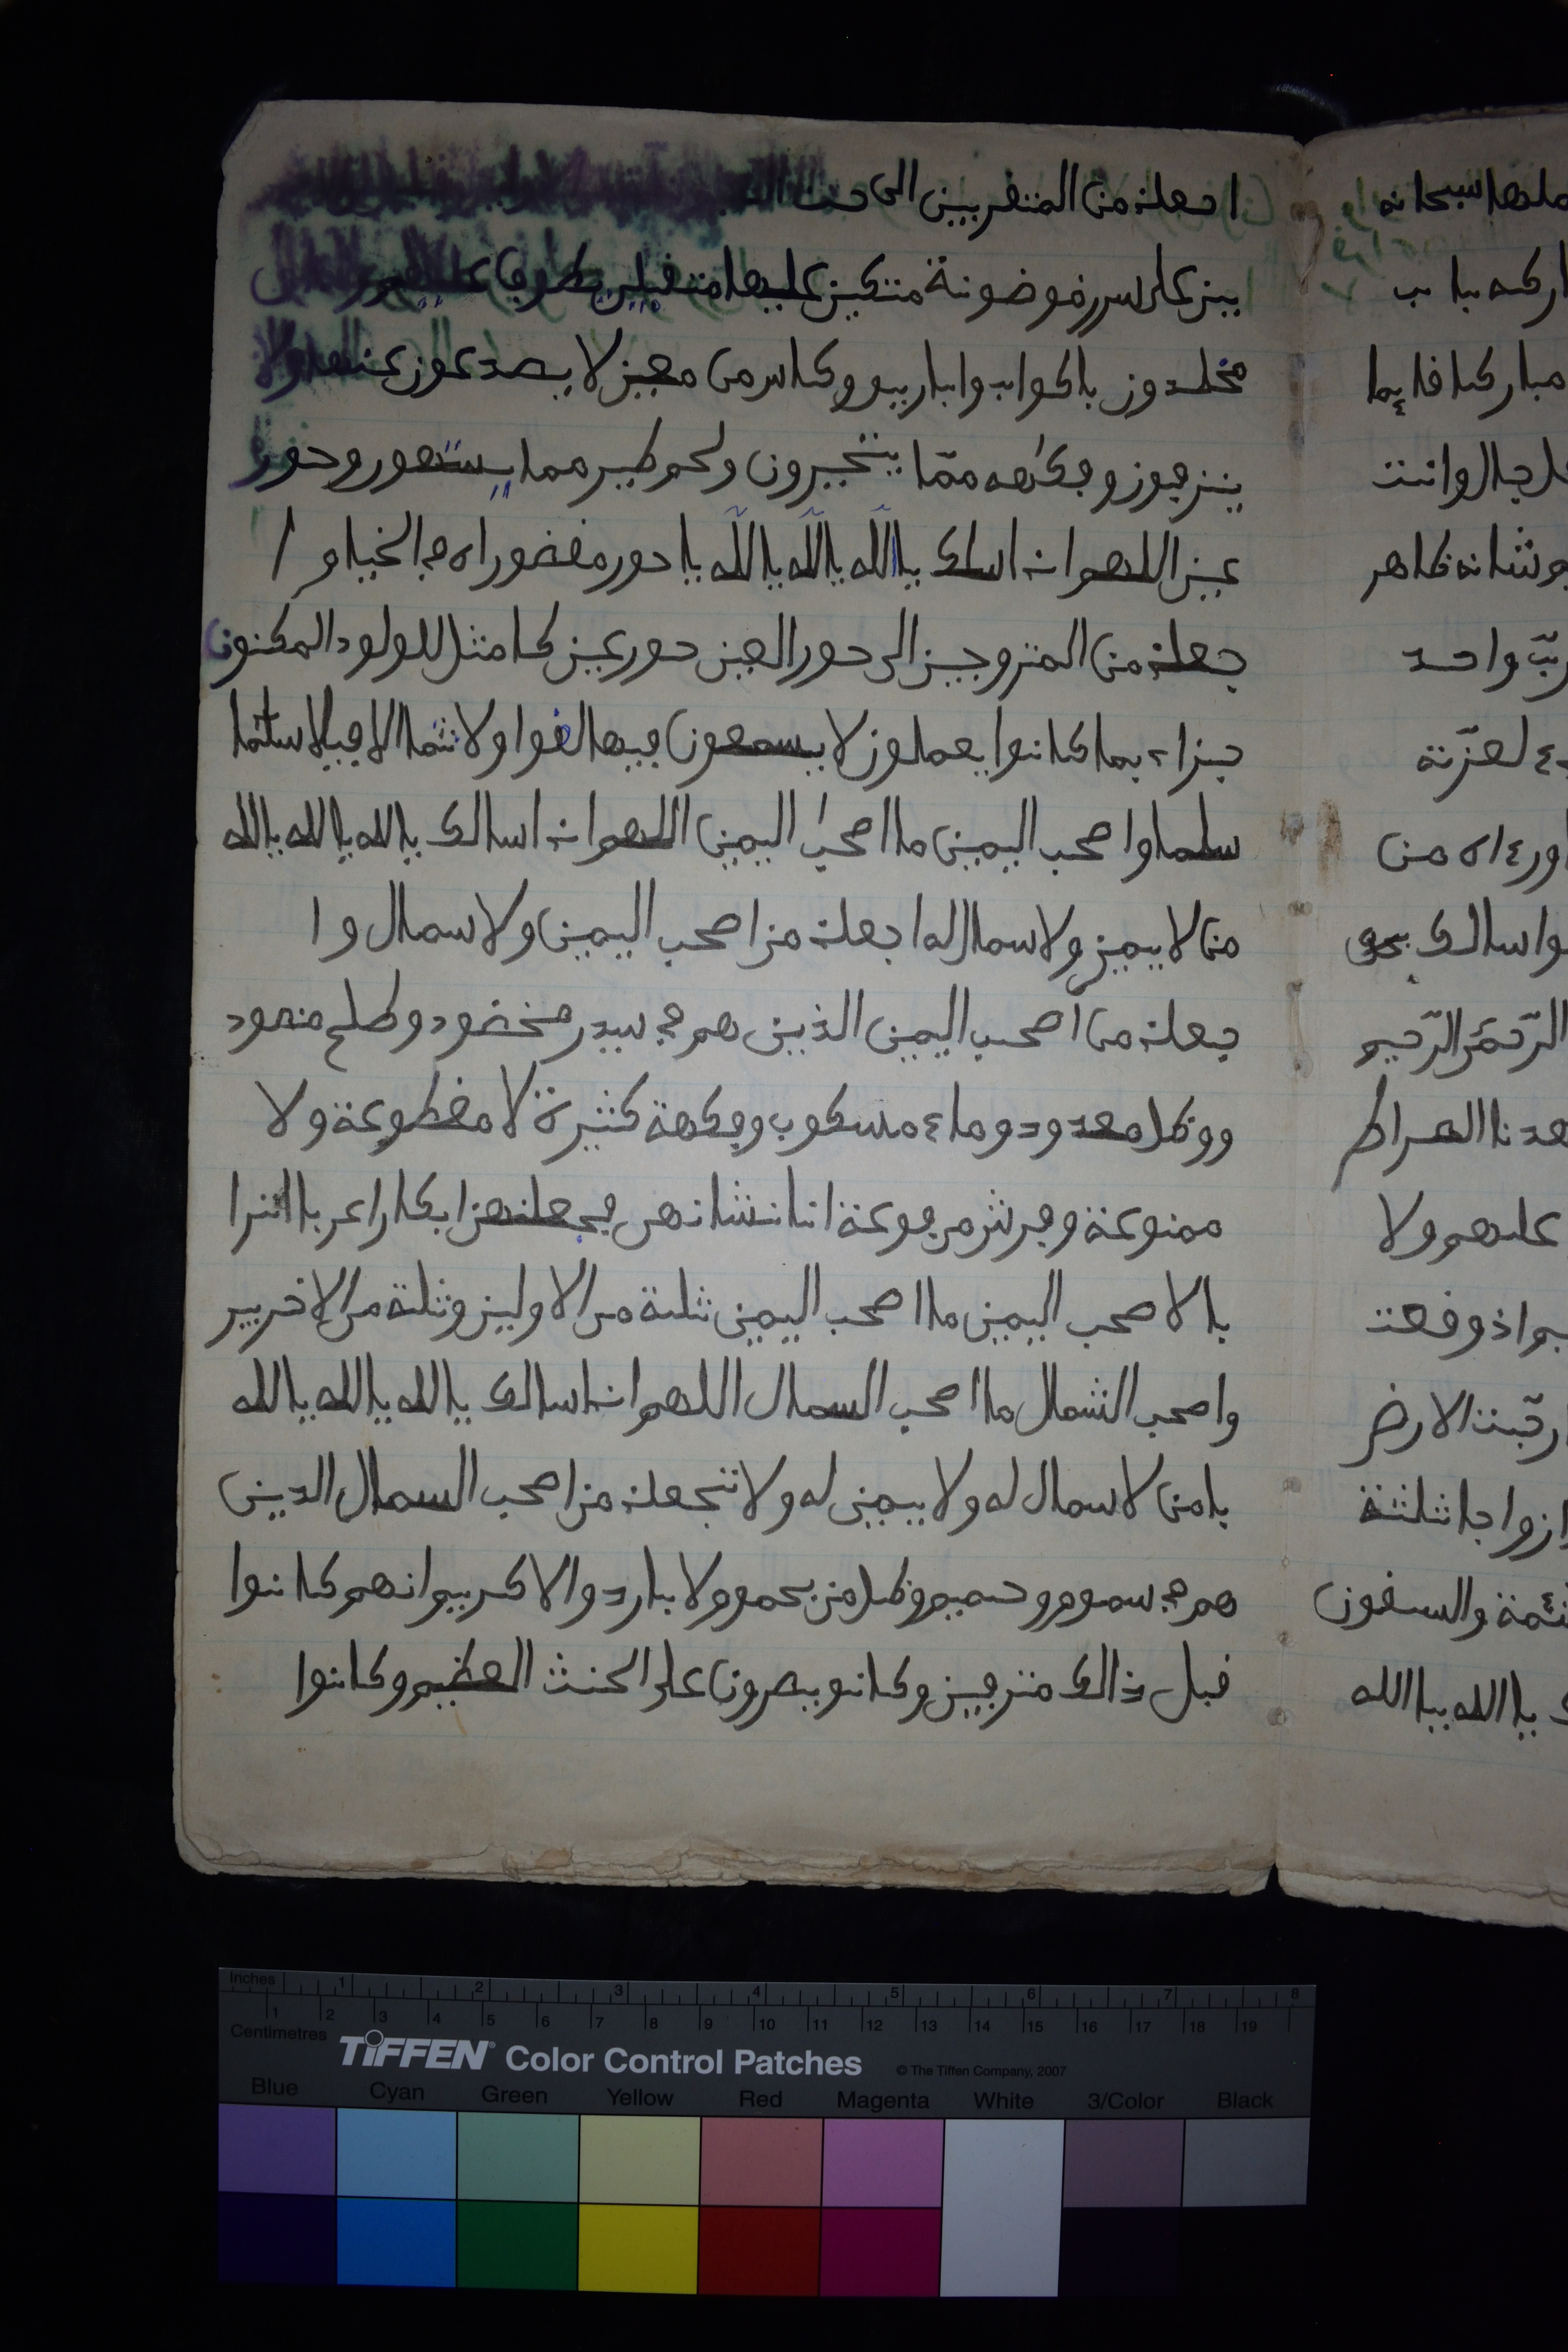 اجعلنے من المتفربين الى جنت
ين على سرر موضونة متكين عليها متفبلين يطوف عليهم
مخلدون باكواب واباريو وكاس من معين لا يصدعون عنها ولا
ينزفون وفكهه ممّا يتخيرون ولحم طير مما يشتهون وحور
عين اللهم انے اسلك يا الله يا الله يا الله يا حور مفصوراه فے الخيام ا
جعلنے من المتزوجين الى حور العين حور عين كا مثل للولود المكنون
جزاء بما كانوا يعملون لا يسمعون فيها لغوا ولا تثما الا فيلا سلما
سلما وا صحب اليمين ما اصحب اليمين اللهم انے اسالك يا الله يا الله يا الله
من لا يمين ولا سمال له اجعلنے من اصحب اليمين ولا سمال وا
جعلنے من اصحب اليمين الذين هم فے سيدر مخضود وطلح منضود
ووظل ممدود وماء مسكوب وفكهة كثيرة لا مفطوعة ولا
ممنوعة وفرش مرفوعة انا انشانهن فجعلنهن ابكارا عربا اترا
با لا صحب اليمين ما اصحب اليمين ثلة من الاولين وثلة من الاخرين
واصحب الشمال ما اصحب السمال اللهم انے اسالك يا الله يا الله يا الله
يا من لا سمال له ولا يمين له ولا تجعلنے من اصحب السمال الدين
هم فے سموم وحميم وظل من يحموم لا بارد والا كريم انهم كانوا
فبل ذالك مترفين وكانو يصرون على الحنث العظيم وكانوا
ملها سبحانه
مباركا فايما
جال وانت
شانه ظاهر
ربّ واحد
لعزّته
من
واسالك بحو
الرّحمن الرّحيم
هدنا الصراط
عليهم ولا
اذ وفعت
رجّت الارض
ازواجا ثلثة
والسبفون
يا الله يا الله
Inches 1 2 3 4 5 6 7 8
1 2 3 4 5 6 7 8 9 10 11 12 13 14 15 16 17 18 19
Centimetres
TIFFEN® Color Control Patches © The Tiffen Company, 2007
Blue Cyan Green Yellow Red Magenta White 3/Color Black